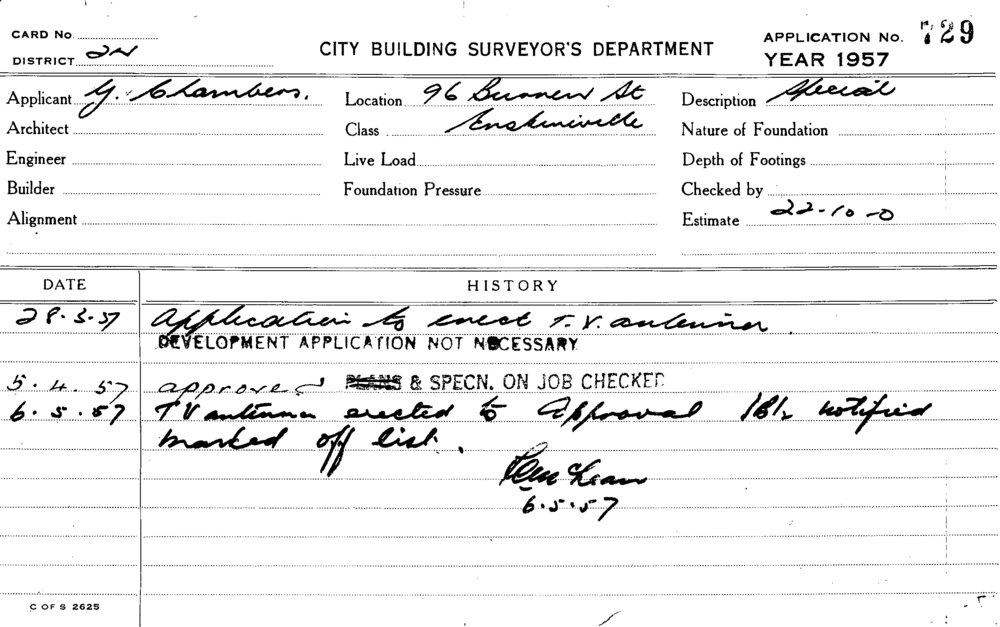 CARD No.
DISTRICT 2N
CITY BUILDING SURVEYOR'S DEPARTMENT
APPLICATION No. 729
YEAR 1957
Applicant G. Chambers.
Location 96 St
Description Special
Architect
Class Erskineville
Nature of Foundation
Engineer
Live Load
Depth of Footings
Builder
Foundation Pressure
Checked by
Alignment
Estimate 22-10-0
DATE
HISTORY
28.3.57 Application to erect T.V. antenna.
DEVELOPMENT APPLICATION NOT NECESSARY
5.4.57 approved PLANS & SPECN. ON JOB CHECKED
6.5.57 TV antenna erected to Approval notified
marked off list.
6.5.57
C OF S 2625